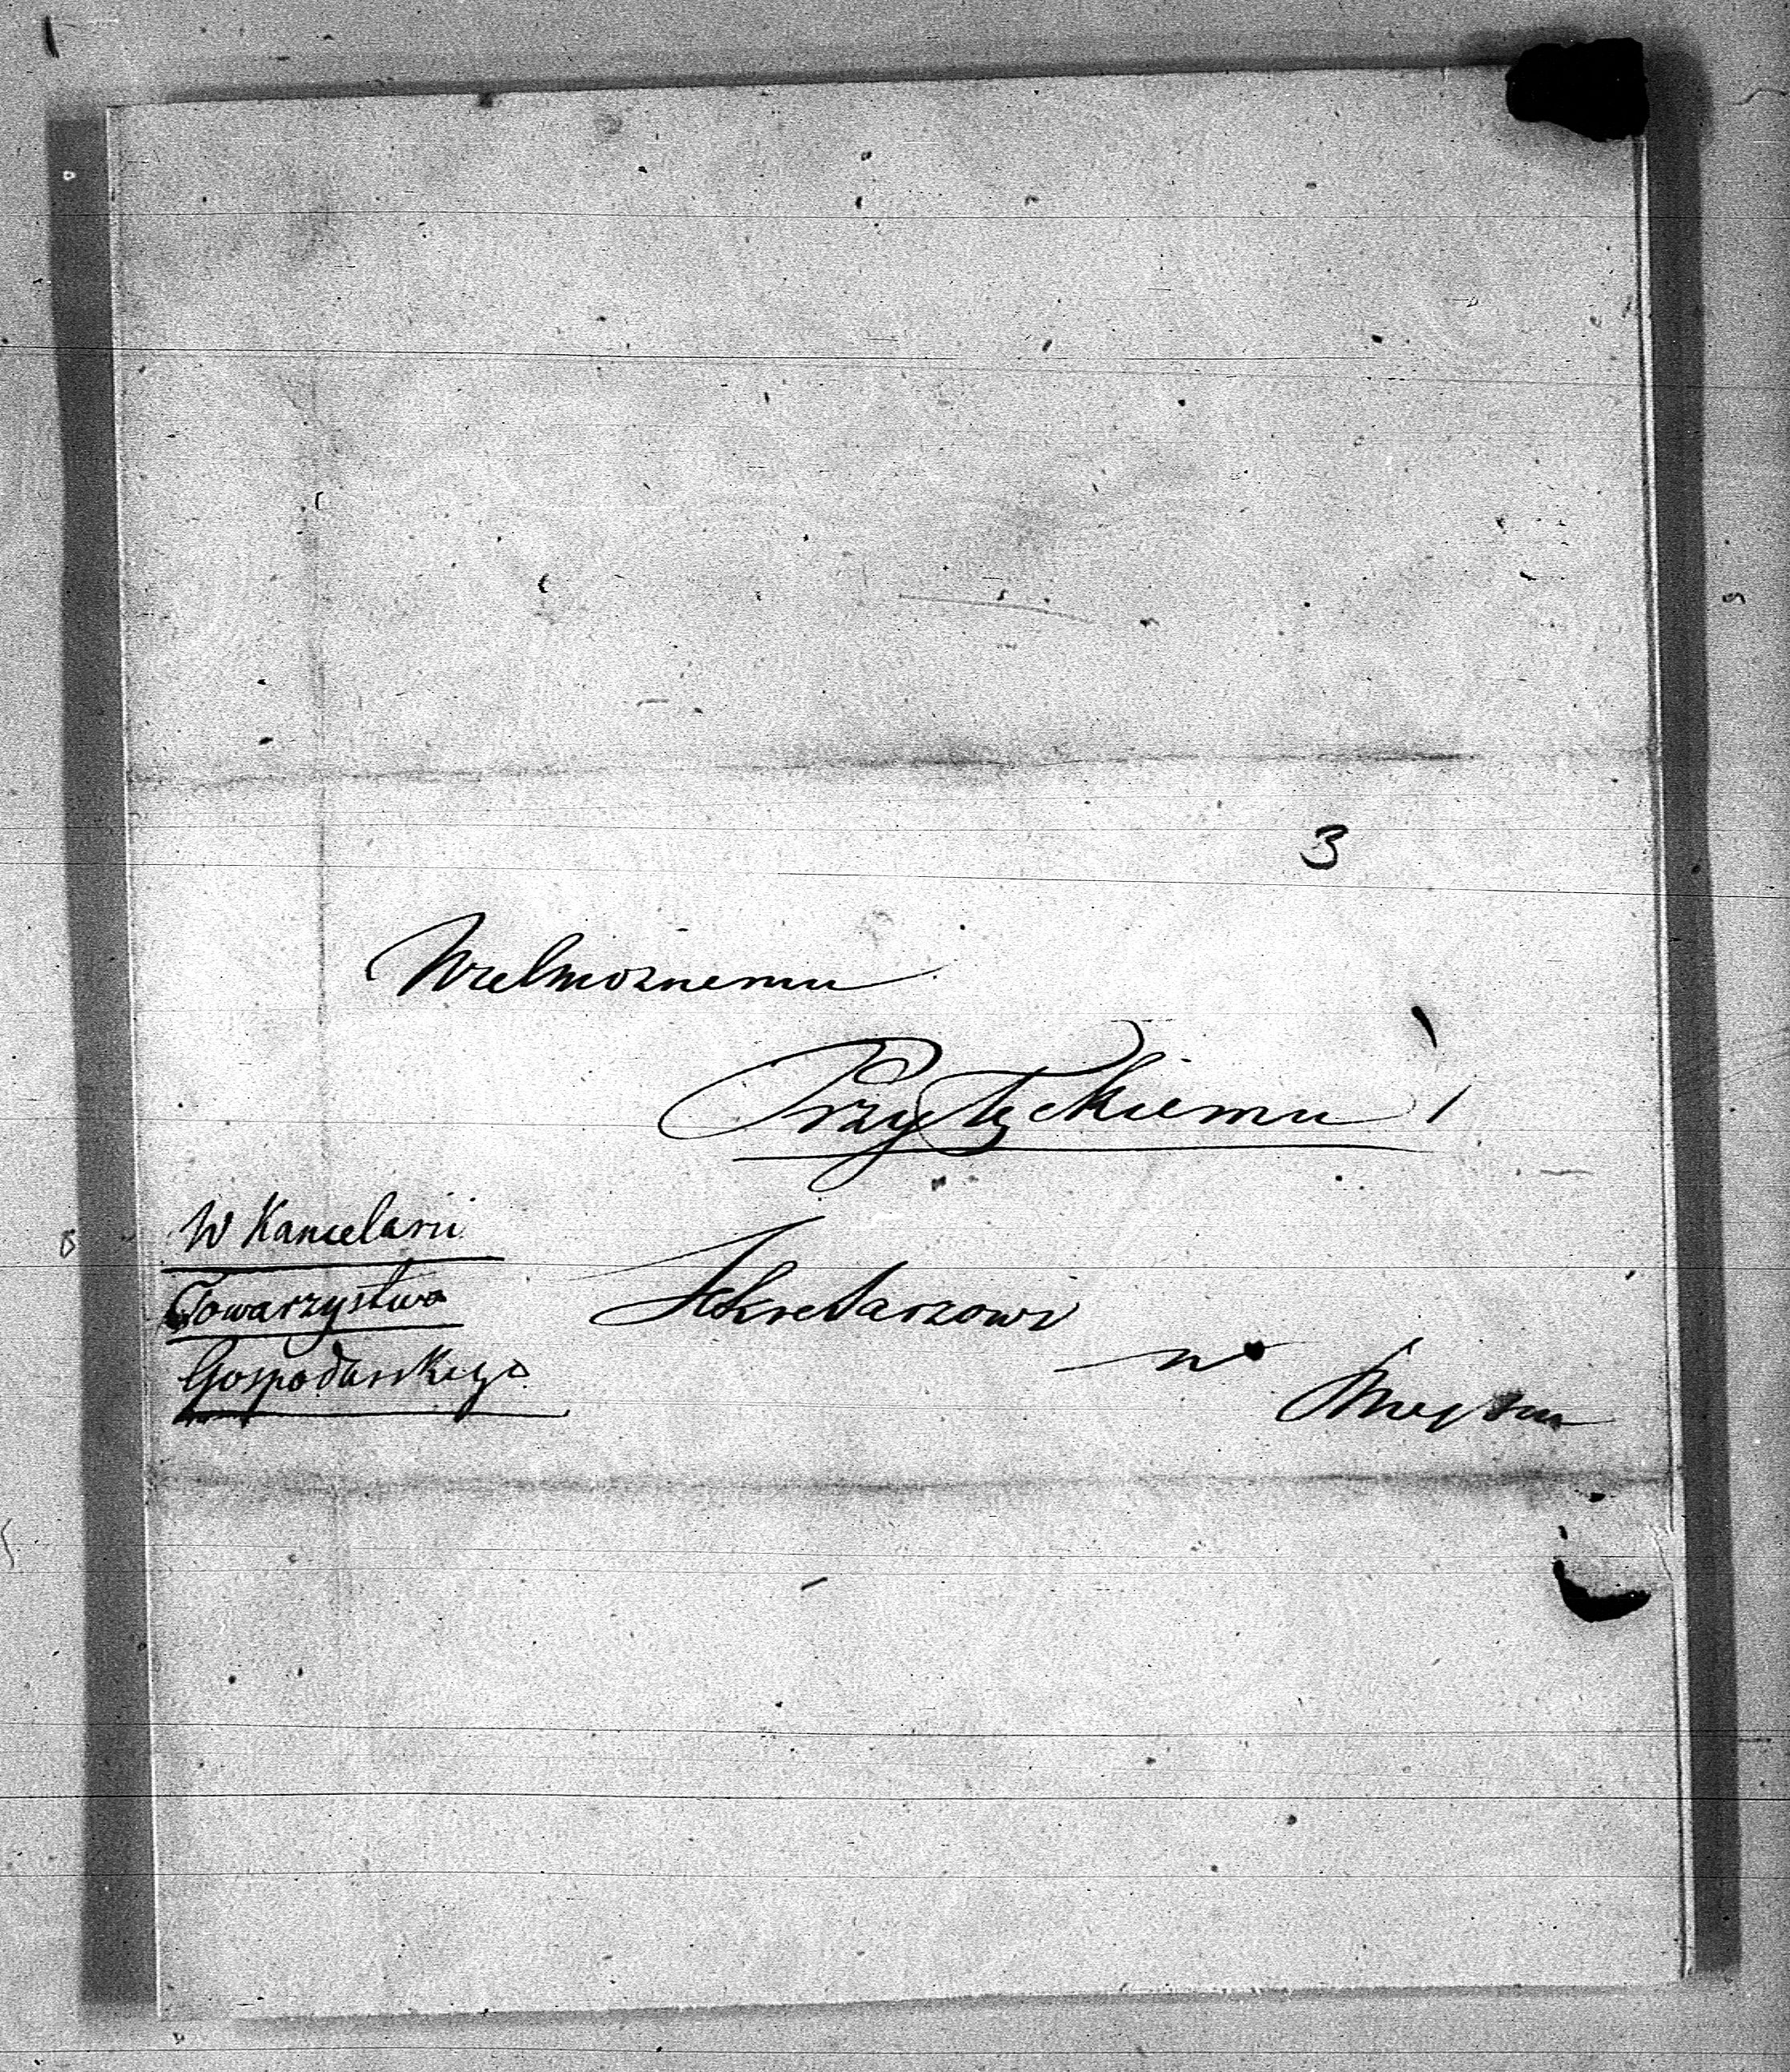 3
Wielmożnemu
Przyłęckiemu
W Kancelarii
Towarzystwa
Gospodarskiego
Sekretarzowi
w